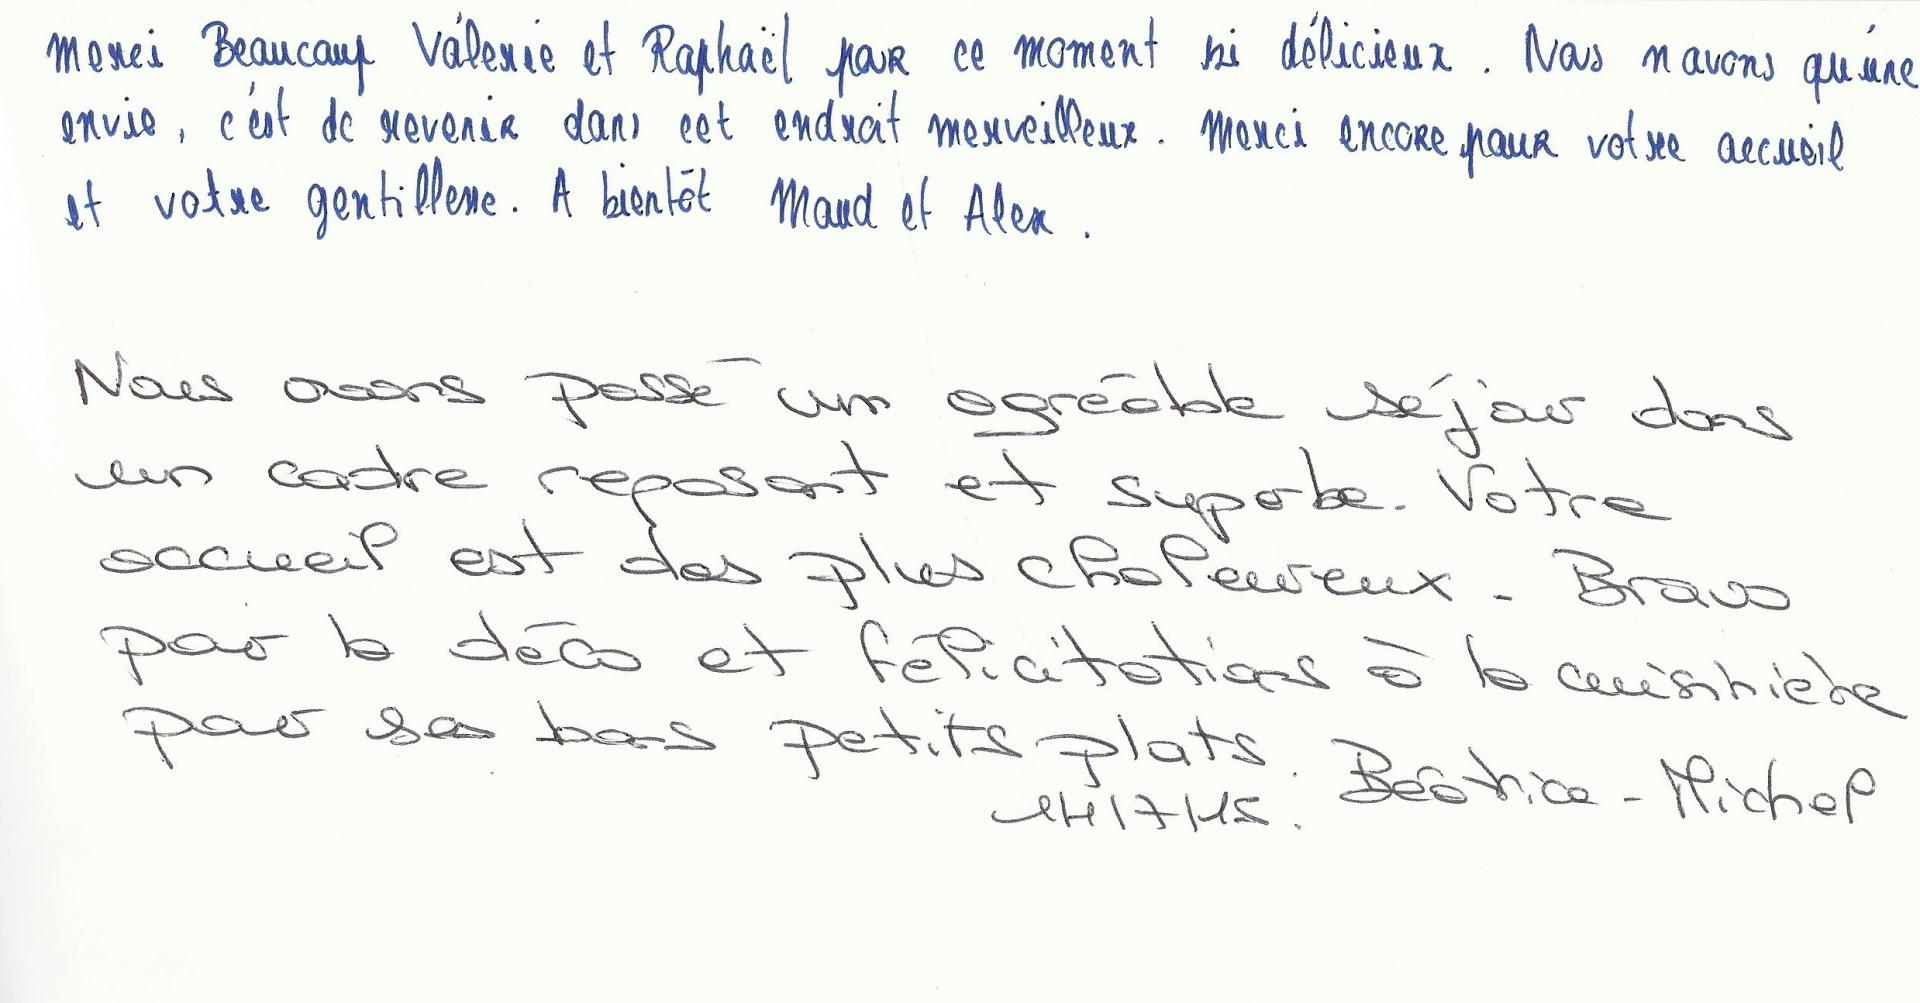 Merci Beaucoup Valérie et Raphaël pour ce moment si délicieux. Nous n'avons qu'une
envie, c'est de revenir dans cet endroit merveilleux. Merci encore pour votre accueil
et votre gentillesse. A bientôt Maud et Alex.
Nous avons passé un agréable séjour dans
un cadre reposant et superbe. Votre
accueil est des plus chaleureux. Bravo
pour la déco et félicitations à la cuisinière
pour ses bons petits plats. Béatrice - Michel